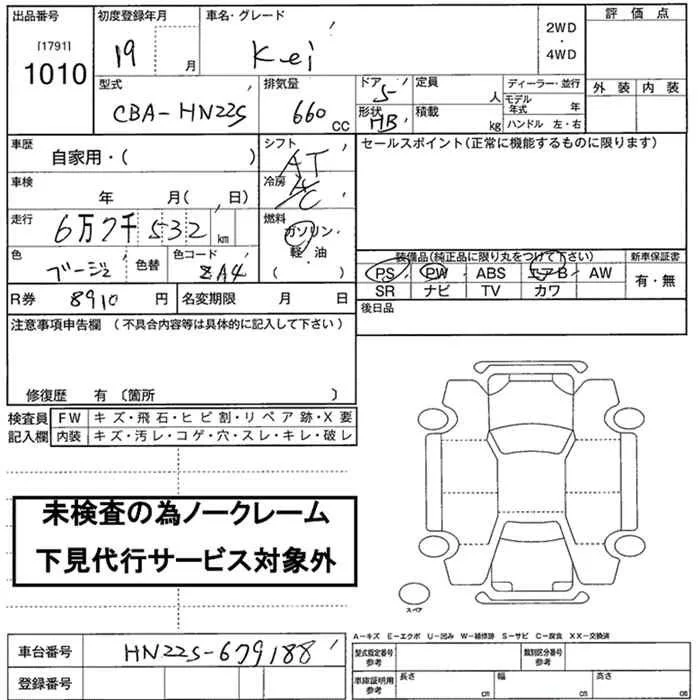 出品番号 初度登録年月 車名・グレード 評価点
[1791]
1010 19 月 Kei 2WD・4WD
型式 排気量 ドア 定員 ディーラー・並行 外装 内装
CBA-HN22S 660 CC 5 人 モデル年式 年
形状 HB 積載 kg ハンドル 左・右
車歴 シフト セールスポイント(正常に機能するものに限ります)
自家用・( ) AT
車検 冷房
年 月( 日) A/C
走行 燃料
6万7千532 km ガソリン・軽・油
装備品(純正品に限り丸をつけて下さい) 新車保証書
色 色替 色コード ( ) PS PW ABS エアB AW 有・無
ベージュ ZA4 SR ナビ TV カワ
R券 8910 円 名変期限 月 日 後日品
注意事項申告欄 (不具合内容等は具体的に記入して下さい)
修復歴 有 〔箇所 〕
検査員 FW キズ・飛石・ヒビ割・リペア跡・X要
記入欄 内装 キズ・汚レ・コゲ・穴・スレ・キレ・破レ
未検査の為ノークレーム
下見代行サービス対象外
スペア
A-キズ E-エクボ U-凹み W-補修跡 S-サビ C-腐食 XX-交換済
車台番号 HN22S-679188 型式指定番号 参考 類別区分番号 参考
登録番号 車庫証明用 参考 長さ cm 幅 cm 高さ cm